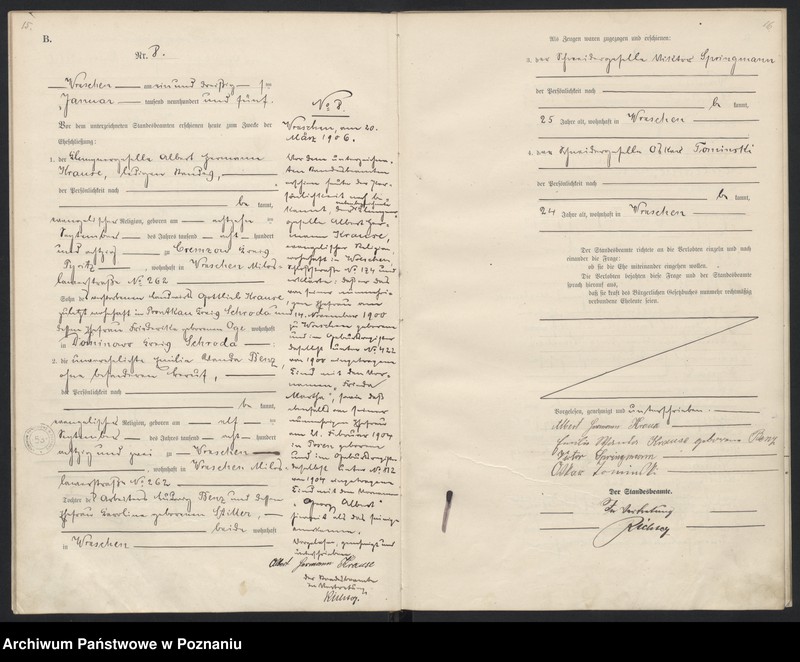 15.
B.
Nr. 8.
Wreschen am ein und dreißig ten
Januar tausend neunhundert und fünf.
Vor dem unterzeichneten Standesbeamten erschienen heute zum Zwecke der
Eheschließung:
1. der Albert Hermann
Krause, ledigen Standes,
der Persönlichkeit nach
be kannt,
evangelischer Religion, geboren am
September des Jahres tausend acht hundert
und achtzig zu Cremzow Kreis
Pyritz, wohnhaft in Wreschen Milos-
lawerstraße No 262
Sohn des verstorbenen Landwirts Gottlieb Krause,
zuletzt wohnhaft in Kreis Schroda und
dessen Ehefrau Friederike geborenen wohnhaft
in Dominowo Kreis Schroda
2. die unverehelichte Emilie Wanda Benz,
ohne besonderen Beruf,
der Persönlichkeit nach
be kannt,
evangelischer Religion, geboren am elf ten
September des Jahres tausend acht hundert
achtzig und zwei zu Wreschen
, wohnhaft in Wreschen Milos-
lawerstraße No 262
Tochter des Arbeiters Ludwig Benz und dessen
Ehefrau Caroline geborenen
beide wohnhaft
in Wreschen
No 8.
Wreschen, am 20.
März 1906.
Vor dem unterzeichne-
ten Standesbeamten
erschien heute der Per-
sönlichkeit nach be-
kannt, der Klempner-
geselle Albert Her-
mann Krause,
evangelischer Religion,
wohnhaft in Wreschen
No 134 und
erklärte, daß er das
von seiner nunmehri-
gen Ehefrau am
14. November 1900
zu Wreschen geborene
und im Geburtsregister
daselbst unter No 422
von 1900 eingetragene
Kind mit den Vor-
namen "Frieda
Martha", sowie das
ebenfalls von seiner
nunmehrigen Ehefrau
am 21. Februar 1904
in Posen geborene
und im Geburtsregister
daselbst unter No
von 1904 eingetragene
Kind mit dem Vornamen
"Georg Albert"
hiermit als das seinige
anerkenne.
Vorgelesen, genehmigt und
unterschrieben
Albert Hermann Krause
Der Standesbeamte
In Vertretung.
16
Als Zeugen waren zugezogen und erschienen:
3. der Schneidergeselle Viktor Springmann
der Persönlichkeit nach
be kannt,
25 Jahre alt, wohnhaft in Wreschen
4. der Schneidergeselle Oskar Tominski
der Persönlichkeit nach
be kannt,
24 Jahre alt, wohnhaft in Wreschen
Der Standesbeamte richtete an die Verlobten einzeln und nach
einander die Frage:
ob sie die Ehe miteinander eingehen wollen.
Die Verlobten bejahten diese Frage und der Standesbeamte
sprach hierauf aus,
daß sie kraft des Bürgerlichen Gesetzbuches nunmehr rechtmäßig
verbundene Eheleute seien.
Vorgelesen, genehmigt und unterschrieben.
Albert Hermann Krause
Emilie Wanda Krause geborene Benz
Viktor Springmann
Oskar Tominski
Der Standesbeamte.
In Vertretung
Archiwum Państwowe w Poznaniu